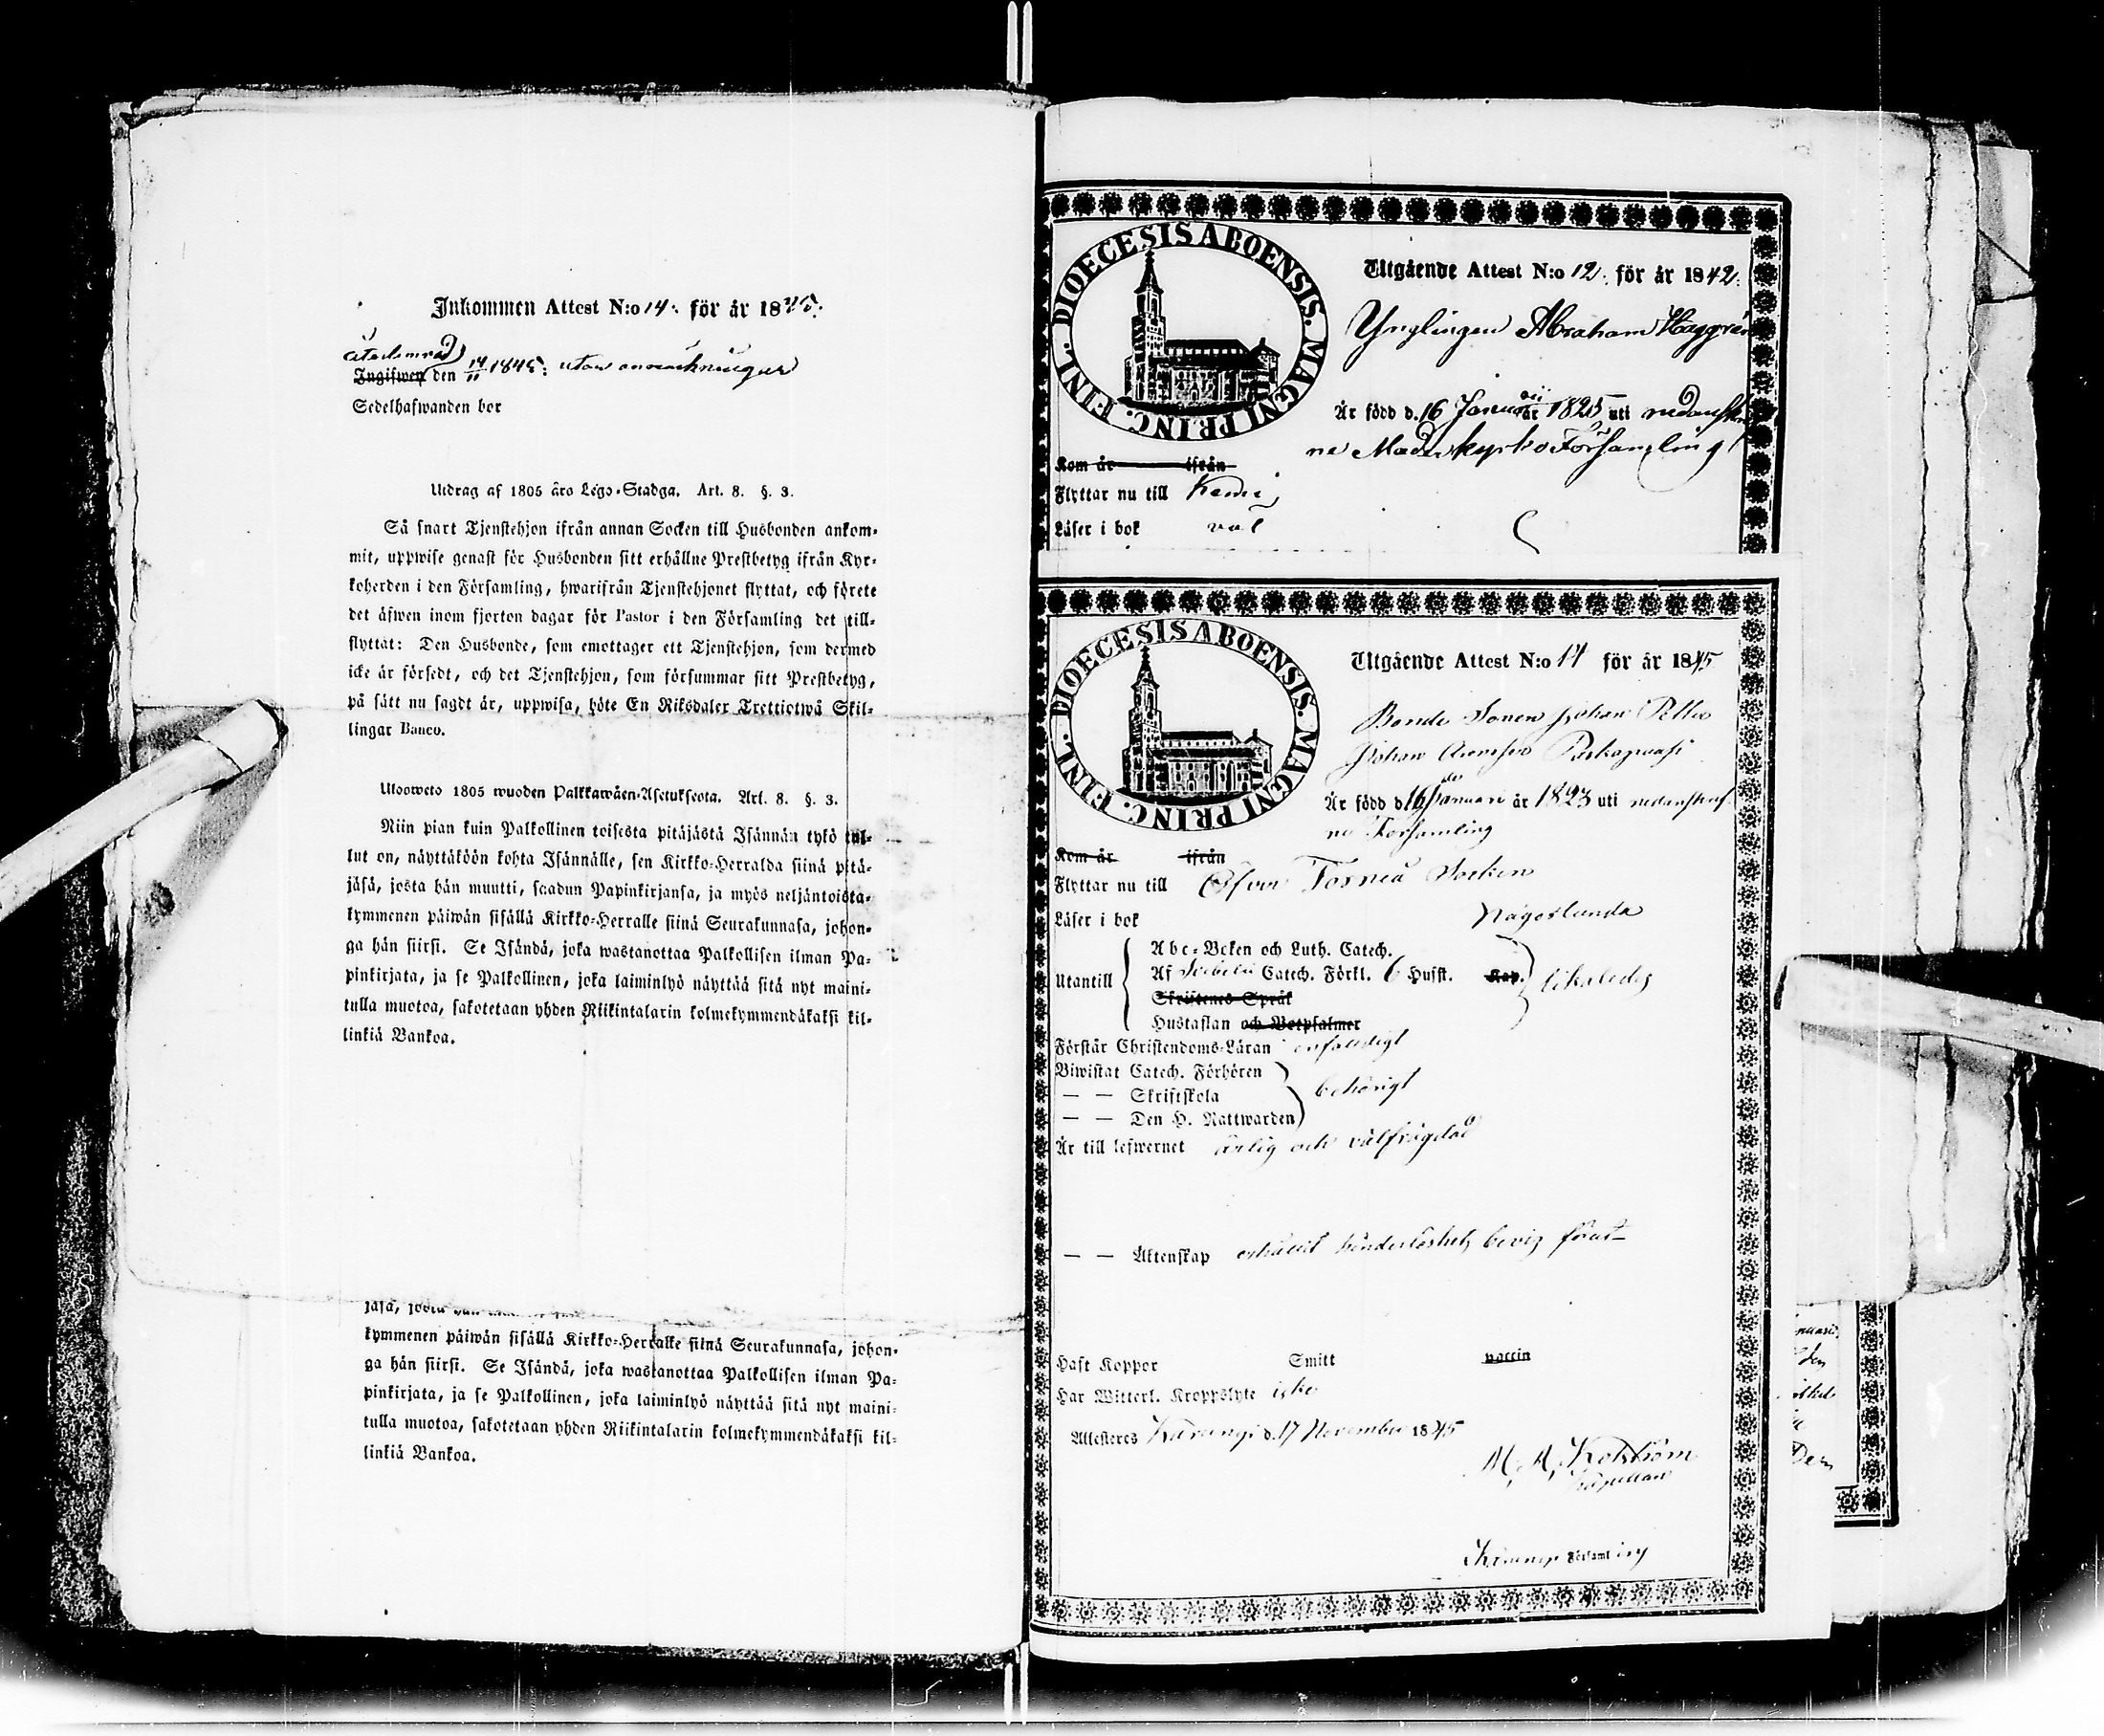 Inkommen Attest N:o 14. för år 1845.
Ingifwen den 14/11 1845: utan anmärkningar
Sedelhafwanden bor
Utdrag af 1805 års Lego-Stadga. Art. 8. §. 3.
Så snart Tjenstehjon ifrån annan Socken till Husbonden ankom-
mit, uppwise genast för Husbonden sitt erhållne Prestbetyg ifrån Kyr-
koherden i den Församling, hwarifrån Tjenstehjonet flyttat, och förete
det äfwen inom fjorton dagar för Pastor i den Församling det till-
flyttat: Den Husbonde, som emottager ett Tjenstehjon, som dermed
icke är försedt, och det Tjenstehjon, som försummar sitt Prestbetyg,
på sätt nu sagdt är, uppwisa, böte En Riksdaler Trettiotwå Skil-
lingar Banco.
Ulosweto 1805 wuoden Palkkawäen-Asetuksesta. Art. 8. §. 3.
Niin pian kuin Palkollinen toisesta pitäjästä Isännän tykö tul-
lut on, näyttäköön kohta Isännälle, sen Kirkko-Herralda siinä pitä-
jäsä, josta hän muutti, saadun Papinkirjansa, ja myös neljäntoista-
kymmenen päiwän sisällä Kirkko-Herralle siinä Seurakunnasa, johon-
ga hän siirsi. Se Isändä, joka wastanottaa Palkollisen ilman Pa-
pinkirjata, ja se Palkollinen, joka laiminlyö näyttää sitä nyt maini-
tulla muotoa, sakotetaan yhden Riikintalarin kolmekymmendäkaksi kil-
linkiä Bankoa.
jäsä, josta hän
kymmenen päiwän sisällä Kirkko-Herralle siinä Seurakunnasa, johon-
ga hän siirsi. Se Isändä, joka wastanottaa Palkollisen ilman Pa-
pinkirjata, ja se Palkollinen, joka laiminlyö näyttää sitä nyt maini-
tulla muotoa, sakotetaan yhden Riikintalarin kolmekymmendäkaksi kil-
linkiä Bankoa.
DIOECESIS ABOENSIS. MAGNI PRINC. FINL.
Utgående Attest N:o 12. för år 1842.
Ynglingen Abraham Haggrén
Är född d. 16 Januarii år 1825 uti nedanstå
ne Moderkyrko Församling
Kom år ifrån
Flyttar nu till Kemi
Läser i bok väl
DIOECESIS ABOENSIS. MAGNI PRINC. FINL.
Utgående Attest N:o 14 för år 1845
Bonde Sonen Johan Petter
Johan
Är född d 16 Januari år 1823 uti nedanstå
ne Församling
Kom år ifrån
Flyttar nu till Öfver Torneå Socken
Läser i bok någorlunda
Abc-Boken och Luth. Catech.
Utantill Af Svebelii Catech. Förkl. 6 Hufst. Kap. likaledes
Skriftenes Språk
Hustaflan och Botpsalmer
Förstår Christendoms-Läran enfaldigt
Biwistat Catech. Förhören
— — Skriftskola behörigt
— — Den H. Nattwarden
Är till lefwernet ärlig och välfrägdad
— — Äktenskap erhållit hinderlöshets bevis förut
Haft Koppor Smitt vaccin
Har Witterl. Kroppslyte icke
Attesteres Karungi d. 17 November 1845
Kapellan
Karungi Församling